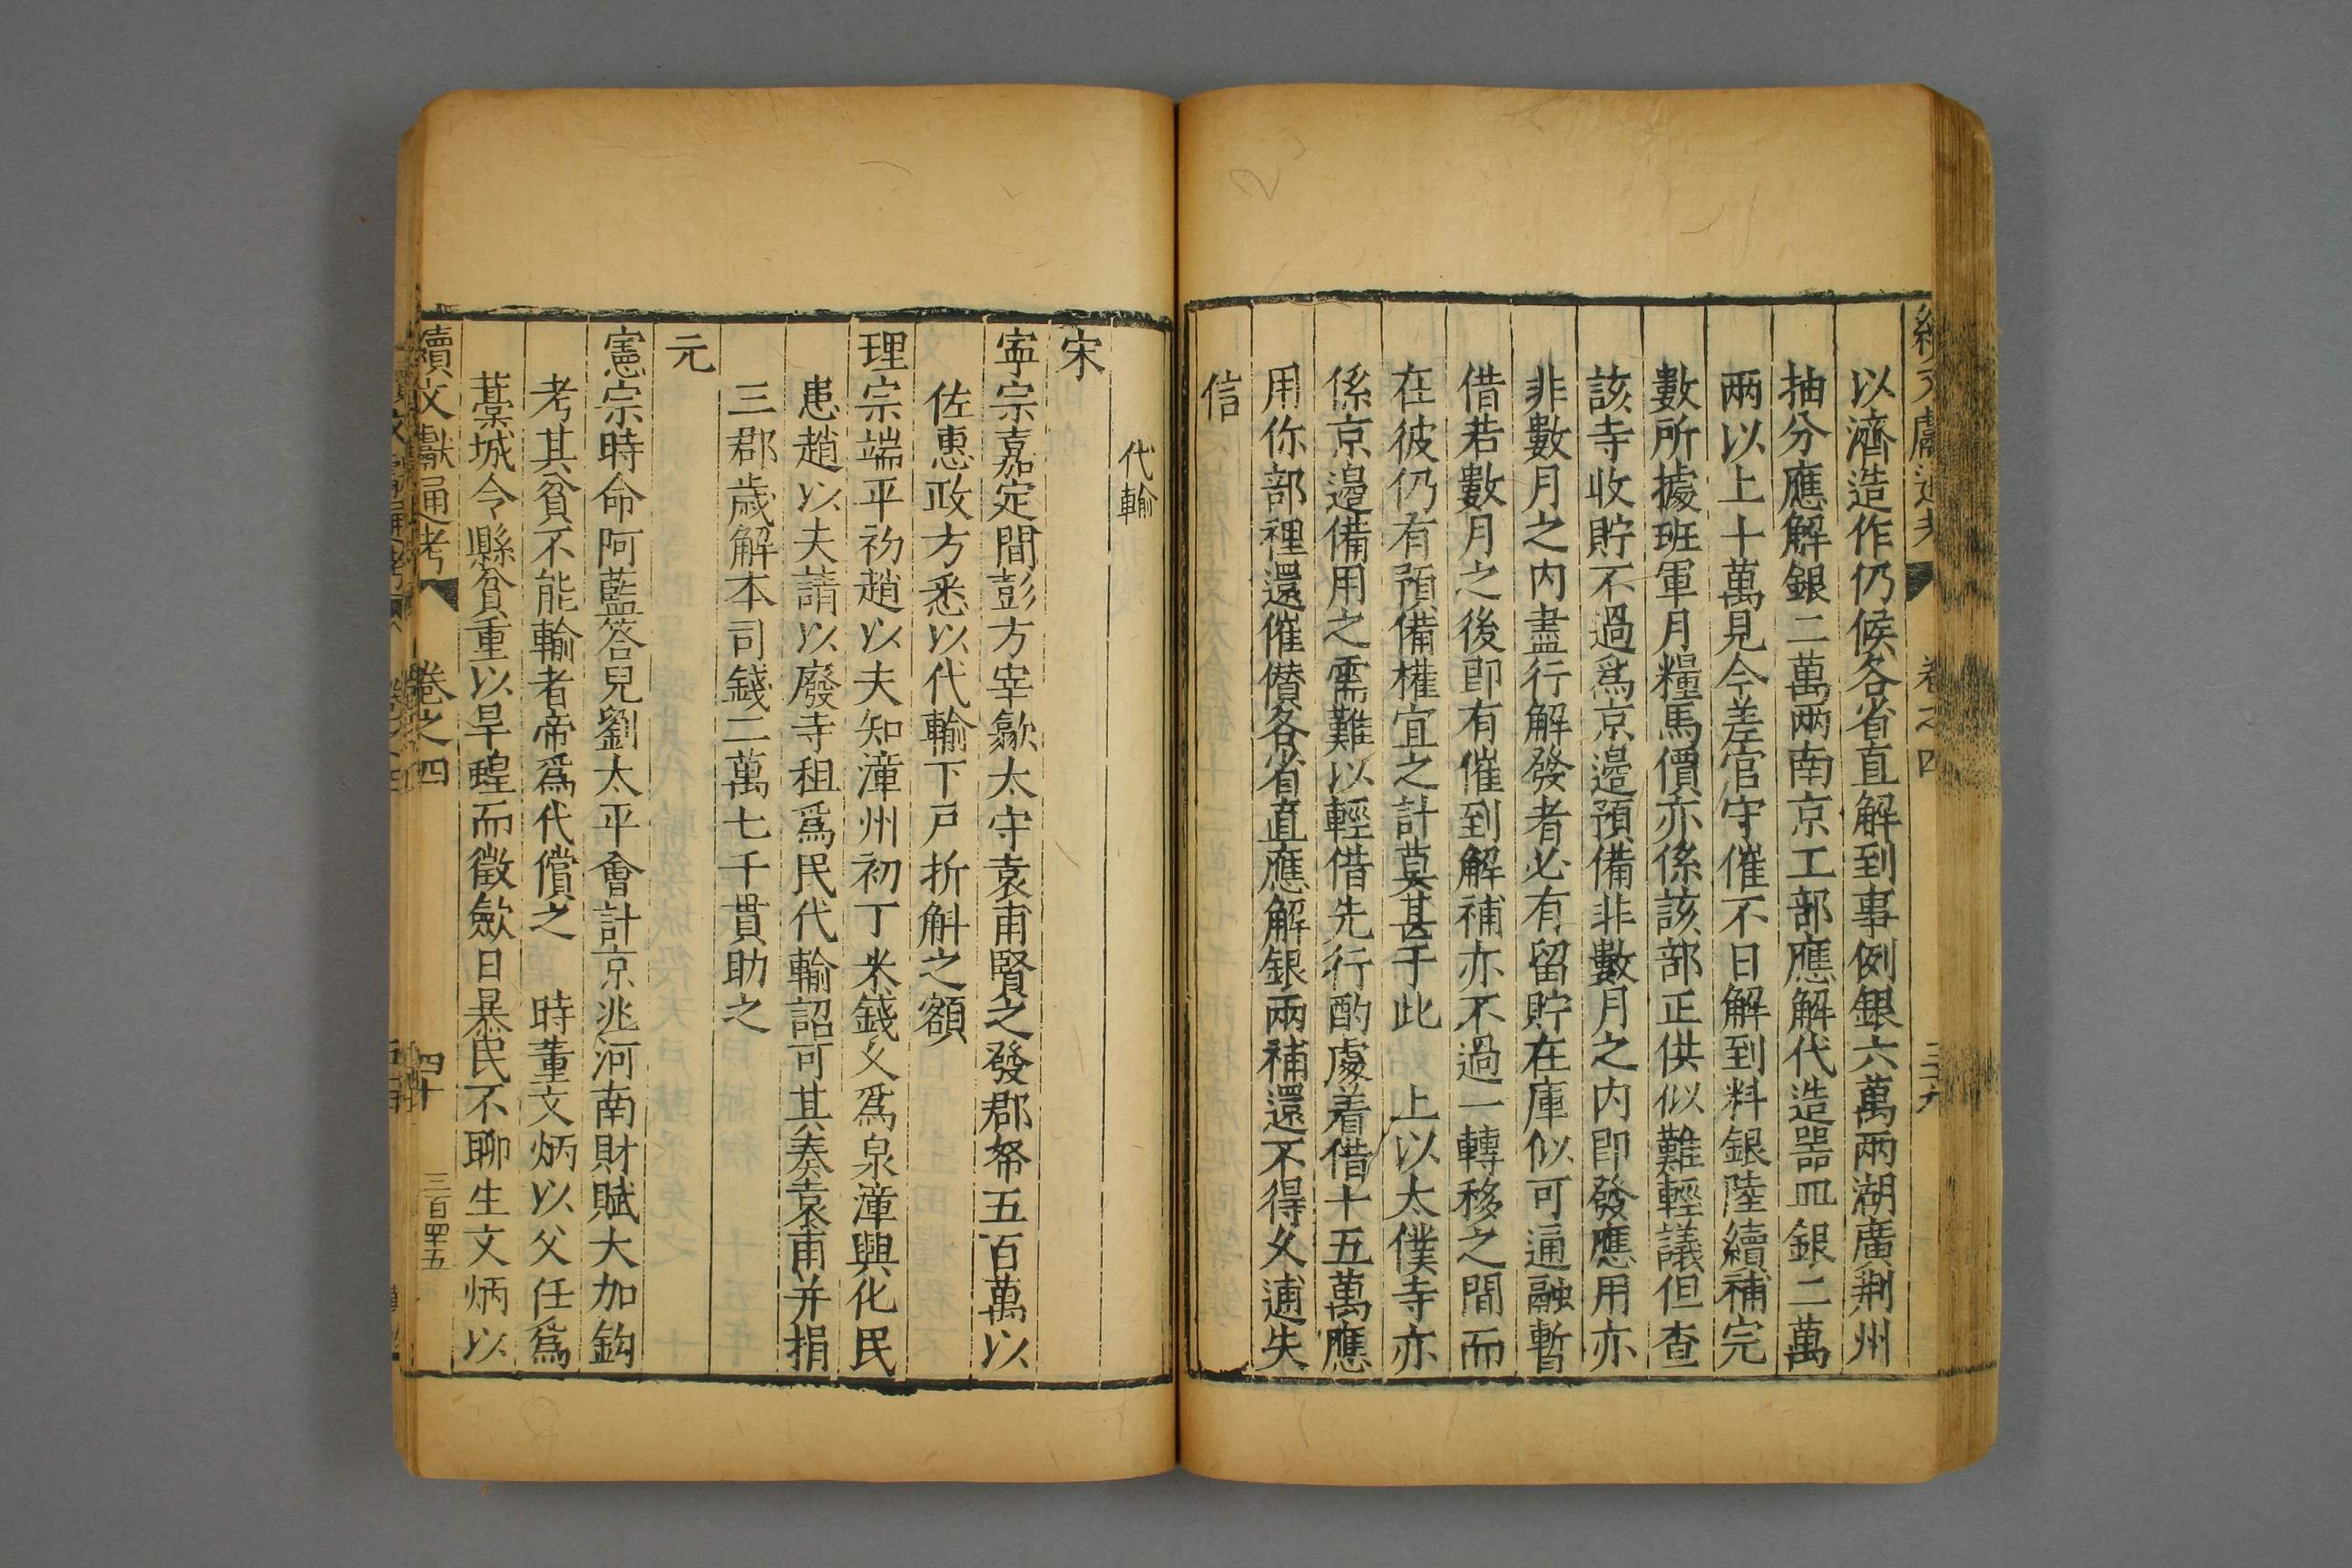 卷之四
三十九
以濟造作仍候各省直解到事例銀六萬兩湖廣荆州
抽分應解銀二萬兩南京工部應解代造噐皿銀二萬
兩以上十萬見今差官守催不日解到料銀陸續補完
數所據班軍月糧馬價亦係該部正供似難輕議但查
該寺收貯不過爲京邉預備非數月之内即發應用亦
非數月之内盡行解發者必有留貯在庫似可通融暫
借若數月之後即有催到解補亦不過一轉移之間而
在彼仍有預備權宜之計莫甚于此　上以太僕寺亦
係京邉備用之需難以輕借先行酌處着借十五萬應
用你部裡還催儹各省直應解銀兩補還不得久逋失
信
代輸
宋
寜宗嘉定間彭方宰歙太守袁甫賢之發郡帑五百萬以
佐惠政方悉以代輸下戸折斛之額
理宗端平初趙以夫知漳州初丁米錢久爲泉漳興化民
患趙以夫請以廢寺租爲民代輸詔可其奏袁甫并捐
三郡歲解本司錢二萬七千貫助之
元
憲宗時命阿藍答兒劉太平會計京兆河南財賦大加鈎
考其貧不能輸者帝爲代償之　時董文炳以父任爲
藁城令縣貧重以旱蝗而徵歛日暴民不聊生文炳以
續文獻通考
卷之四
四十
三百四五